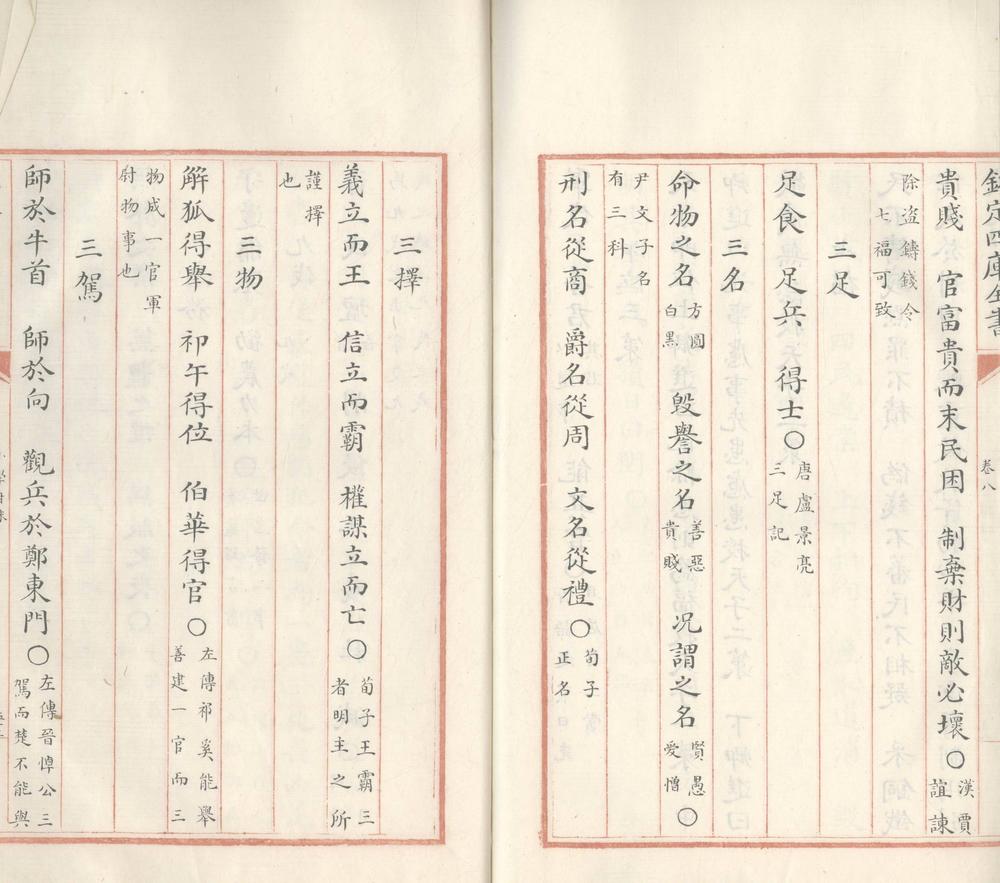 欽定四庫全書
卷八
貴賤 官富貴而末民困 制棄財則敵必壞〇漢賈誼諫
除盗鑄錢令七福可致
三足
足食 足兵 得士〇唐盧景亮三足記
三名
命物之名方圓白黑 毁譽之名善惡貴賤 况謂之名賢愚愛憎〇
尹文子名有三科
刑名從商 爵名從周 文名從禮〇荀子正名
三擇
義立而王 信立而霸 權謀立而亡〇荀子王霸三者明主之所
謹擇也
三物
解狐得舉 祁午得位 伯華得官〇左傳祁奚能舉善建一官而三
物成一官軍尉物事也
三駕
師於牛首 師於向 觀兵於鄭東門〇左傳晉悼公三駕而楚不能與